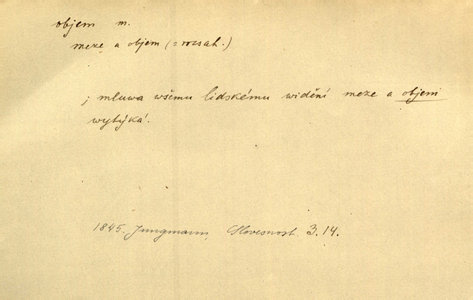 objem m.
meze a objem (= rozsah.)
; mluwa wšemu lidskému widění meze a objem
wytýká.
1845. Jungmann, Slovesnost. 3.14.